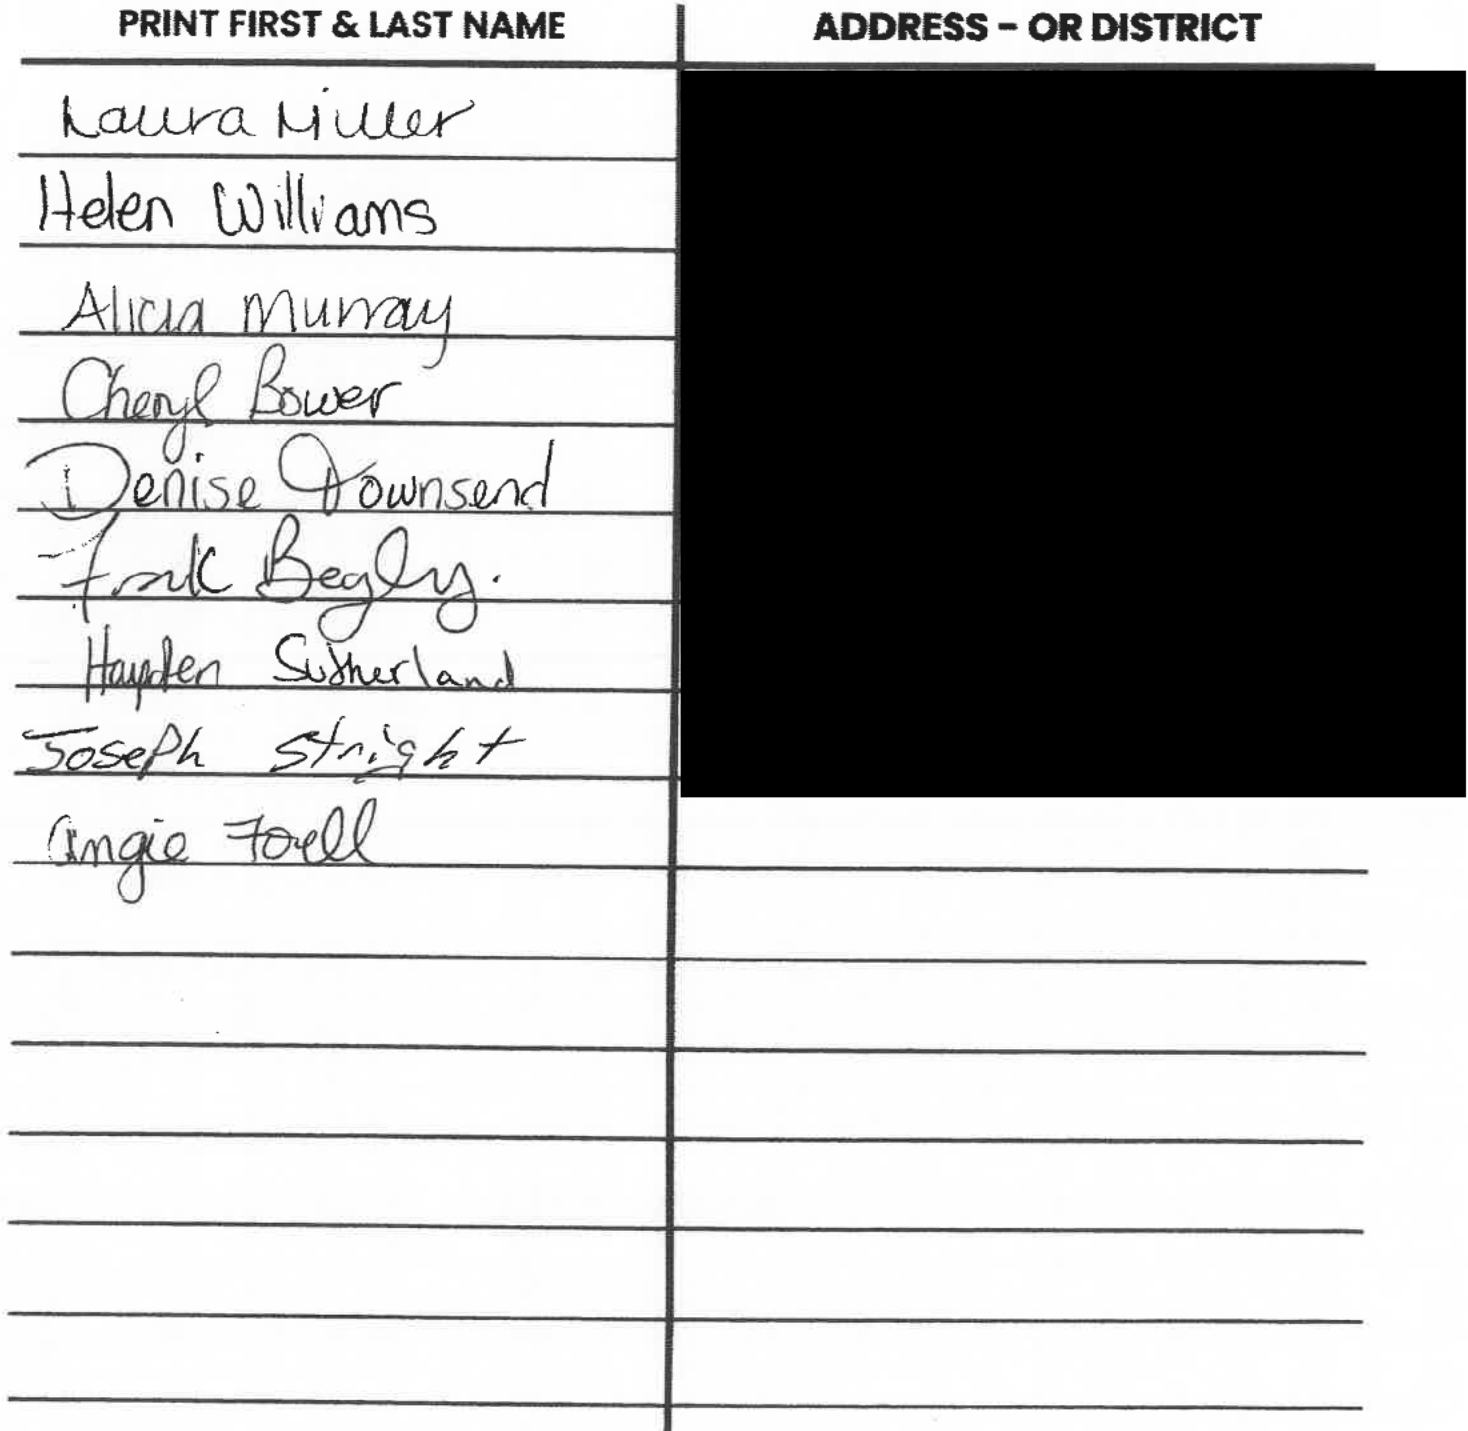 PRINT FIRST & LAST NAME ADDRESS – OR DISTRICT
Laura Miller
Helen Williams
Alicia Murray
Cheryl Bower
Denise Townsend
Frank Begley.
Hayden Sutherland
Joseph Stright
Angie Forell